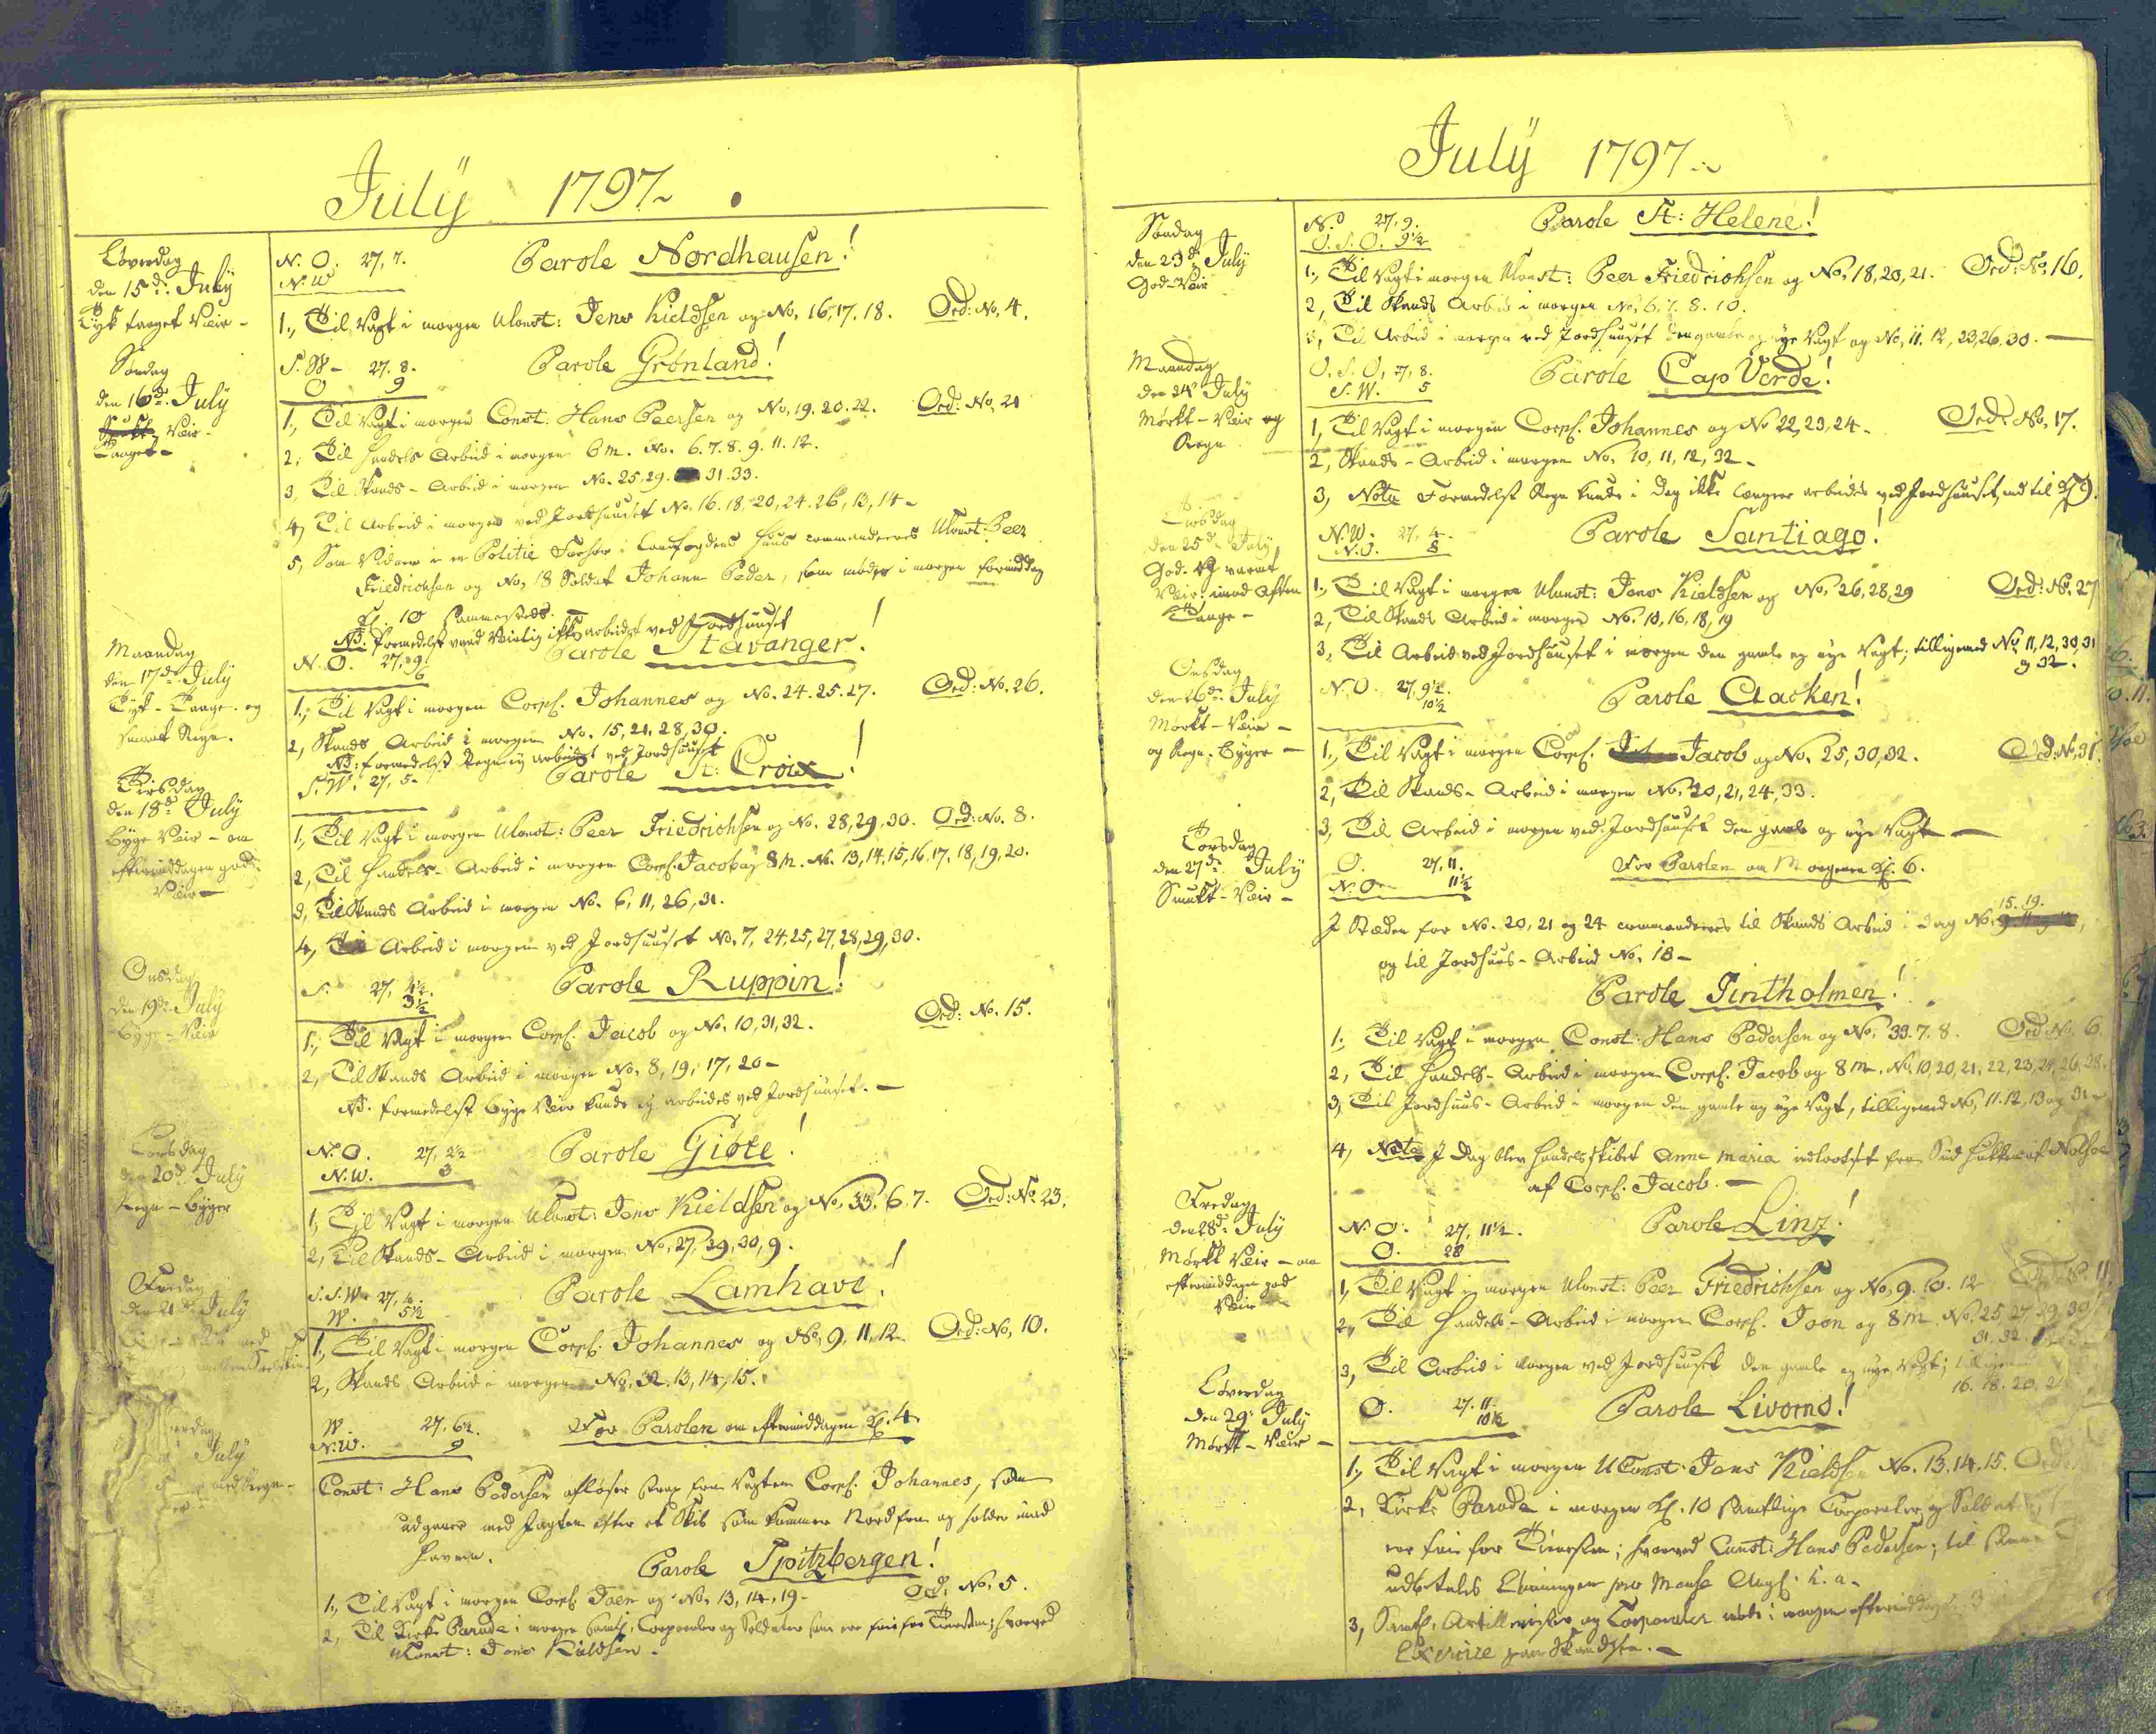 July 1797
Løverdag
den 15de July
Tyk taaget Veir -
N.O. 27, 7.
N.W
Parole Nordhausen!
1., Til Vagt i morgen UConst: Jens Kieldsen og No, 16, 17. 18. Ord: No, 4.
Søndag
den 16de July
Veir -
Taaget -
S.W - 27. 8.
O 9
Parole Grønland!
1., Til Vagt i morgen Const: Hans Peersen og No, 19. 20. 22. Ord: No, 21
2; Til Handels Arbeid i morgen 6 m. No. 6. 7. 8. 9. 11. 12.
3, Til Skands - Arbeid i morgen No. 25, 29. 31. 33.
4, Til Arbeid i morgen ved Jordhuuset No. 16. 18. 20, 24. 26, 13, 14 -
5, Som Vidner i en Politie Forhør i Landfogdens Huus commanderes UConst: Peer
Friedrichsen og No, 18 Soldat Johann Peder, som møder i morgen formiddag
Kl. 10 sammesteds.
NB. formedelst ved Jordhuuset
Maandag
den 17de July
Tyk - Taage og
smaat Regn.
N.O. 27, 9
6
Parole Stavanger!
1., Til Vagt i morgen Corpl. Johannes og No. 24. 25. 27. Ord: No. 26.
2, Skands Arbeid i morgen No. 15, 21, 28, 30.
NB: formedelst Regn ej arbeidet ved Jordhuuset
Tirsdag
den 18de July
Byge Veir - om
eftermiddagen godt
Veir -
S.W. 27, 5 -
Parole St: Croix!
1., Til Vagt i morgen UConst: Peer Friedrichsen og No. 28, 29, 30. Ord: No. 8.
2, Til Handels - Arbeid i morgen Corpl. Jacob og 8 m. No. 13, 14, 15, 16, 17, 18, 19, 20.
3, Til Skands Arbeid i morgen No. 6, 11, 26, 31.
4, Til Arbeid i morgen ved Jordhuuset No, 7, 24, 25, 27, 28, 29, 30.
Onsdag
den 19de July
Byge - Veir
S. 27, 4½.
3½
Parole Ruppin!
1., Til Vagt i morgen Corpl. Jacob og No, 10, 31, 32. Ord: No. 15.
2, Til Skands Arbeid i morgen No, 8, 19, 17, 20 -
NB. formedelst byge Veir kunde ej arbeides ved Jordhuuset. -
Torsdag
den 20de July
Regn - Byger
N.O. 27, 2½
N.W. 3
Parole Giøte!
1, Til Vagt i morgen UConst: Jens Kieldsen og No, 33. 6. 7. Ord: No. 23.
2, Til Skands - Arbeid i morgen No, 27, 29, 30, 9.
Fredag
den 21de July
S.S.W. 27, 4.
W. 5½
Parole Lamhave!
1., Til Vagt i morgen Corpl. Johannes og No, 9, 11, 12. Ord: No, 10.
2, Skands Arbeid i morgen No. 32. 13, 14, 15.
July
med Regn -
W. 27. 6½.
N.W. 9
Før Parolen om eftermiddagen Kl. 4.
Const: Hans Pedersen afløser strax fra Vagten Corpl. Johannes, som
udgaaer med Jagten efter et Skib som kommer Nord fra og holder ind ad
Havnen.
Parole Spitzbergen!
1., Til Vagt i morgen Corpl. Joen og No, 13, 14, 19 - Ord: No, 5.
2, Til Kirke Parade i morgen samtl. Corporaler og Soldater som ere frie for Tienesten; hvorved
UConst: Jens Kieldsen.
July 1797
Søndag
den 23de July
God - Veir
N. 27, 9.
O.S.O. 9½
Parole St: Helene!
1., Til Vagt i morgen UConst: Peer Friedrichsen og No, 18, 20, 21. Ord: No. 16.
2, Til Skands Arbeid i morgen No, 6. 7. 8. 10.
3, Til Arbeid i morgen ved Jordhuuset den gamle og nye Vagt og No, 11. 12, 23, 26, 30. -
Maandag
den 24de July
Mørkt - Veir og
Regn
O.S.O, 27, 8.
S.W. 5
Parole Cap Verde!
1, Til Vagt i morgen Corpl. Johannes og No 22, 23, 24 - Ord: No, 17.
2, Skands - Arbeid i morgen No, 10, 11, 12, 32 -
3, Nota Formedelst Regn kunde i Dag ikke længere arbeides ved Jordhuuset, end til Kl 9.
Tirsdag
den 25de July
God og varmt
Veir: imod Aften
Taage -
N.W. 27, 4 -
N.O. 8
Parole Santiago!
1., Til Vagt i morgen UConst: Jens Kieldsen og No, 26, 28, 29 Ord: No. 27
2, Til Skands Arbeid i morgen No. 10, 16, 18, 19
3, Til Arbeid ved Jordhuuset i morgen den gamle og nye Vagt; tilligemed No, 11, 12, 30, 31
og 32.
Onsdag
den 26de July
Mørkt - Veir -
og Regn - Byger -
N.O. 27, 9½.
10½
Parole Aacken!
1., Til Vagt i morgen Corpl. Jacob og No, 25, 30, 32. Ord: No, 31.
2, Til Skands - Arbeid i morgen No, 20, 21, 24, 33.
3, Til Arbeid i morgen ved Jordhuuset den gamle og nye Vagt -
Torsdag
den 27de July
Smukt - Veir -
O. 27, 11.
N.O - 11½
Før Parolen om Morgenen Kl. 6.
15. 19.
I Stæden for No. 20, 21 og 24 commanderes til Skands Arbeid i dag No.
og til Jordhuus - Arbeid No, 18 -
Parole Tintholmen!
1; Til Vagt i morgen Const: Hans Pedersen og No, 33. 7. 8. Ord: No. 6.
2, Til Handels - Arbeid i morgen Corpl. Jacob og 8 m. No, 10, 20, 21, 22, 23, 24, 26, 28.
3, Til Jordhuus - Arbeid i morgen den gamle og nye Vagt, tilligemed No, 11. 12, 13 og 31 -
4, Nota I Dag blev Handelsskibet Anna Maria indlootset fra Syd af Nolsøe
af Corpl. Jacob. -
Fredag
den 28de July
Mørkt Veir - om
eftermiddagen god
Veir
N.O. 27, 11½.
O. 28
Parole Linz!
1, Til Vagt i morgen UConst: Peer Friedrichsen og No, 9. 10. 12
2, Til Handels - Arbeid i morgen Corpl. Joen og 8 m. No. 25, 27, 29, 30
31, 32.
3, Til Arbeid i morgen ved Jordhuuset den gamle og nye Vagt;
16. 18. 20.
Løverdag
den 29de July
Mørkt - Veir -
O. 27. 11.
10½
Parole Livorno!
1., Til Vagt i morgen UConst: Jens Kieldsen No. 13. 14. 15. Ord:
2, Kirke Parade i morgen Kl. 10 samtlige Corporaler og Soldater
ere frie for Tienesten; hvorved Const: Hans Pedersen; til
udbetales Lønningen pro Mense Augl. h. a.
3, Samtl. Artillerister og Corporaler møde i morgen eftermiddag
Exercice paa Skandsen. -